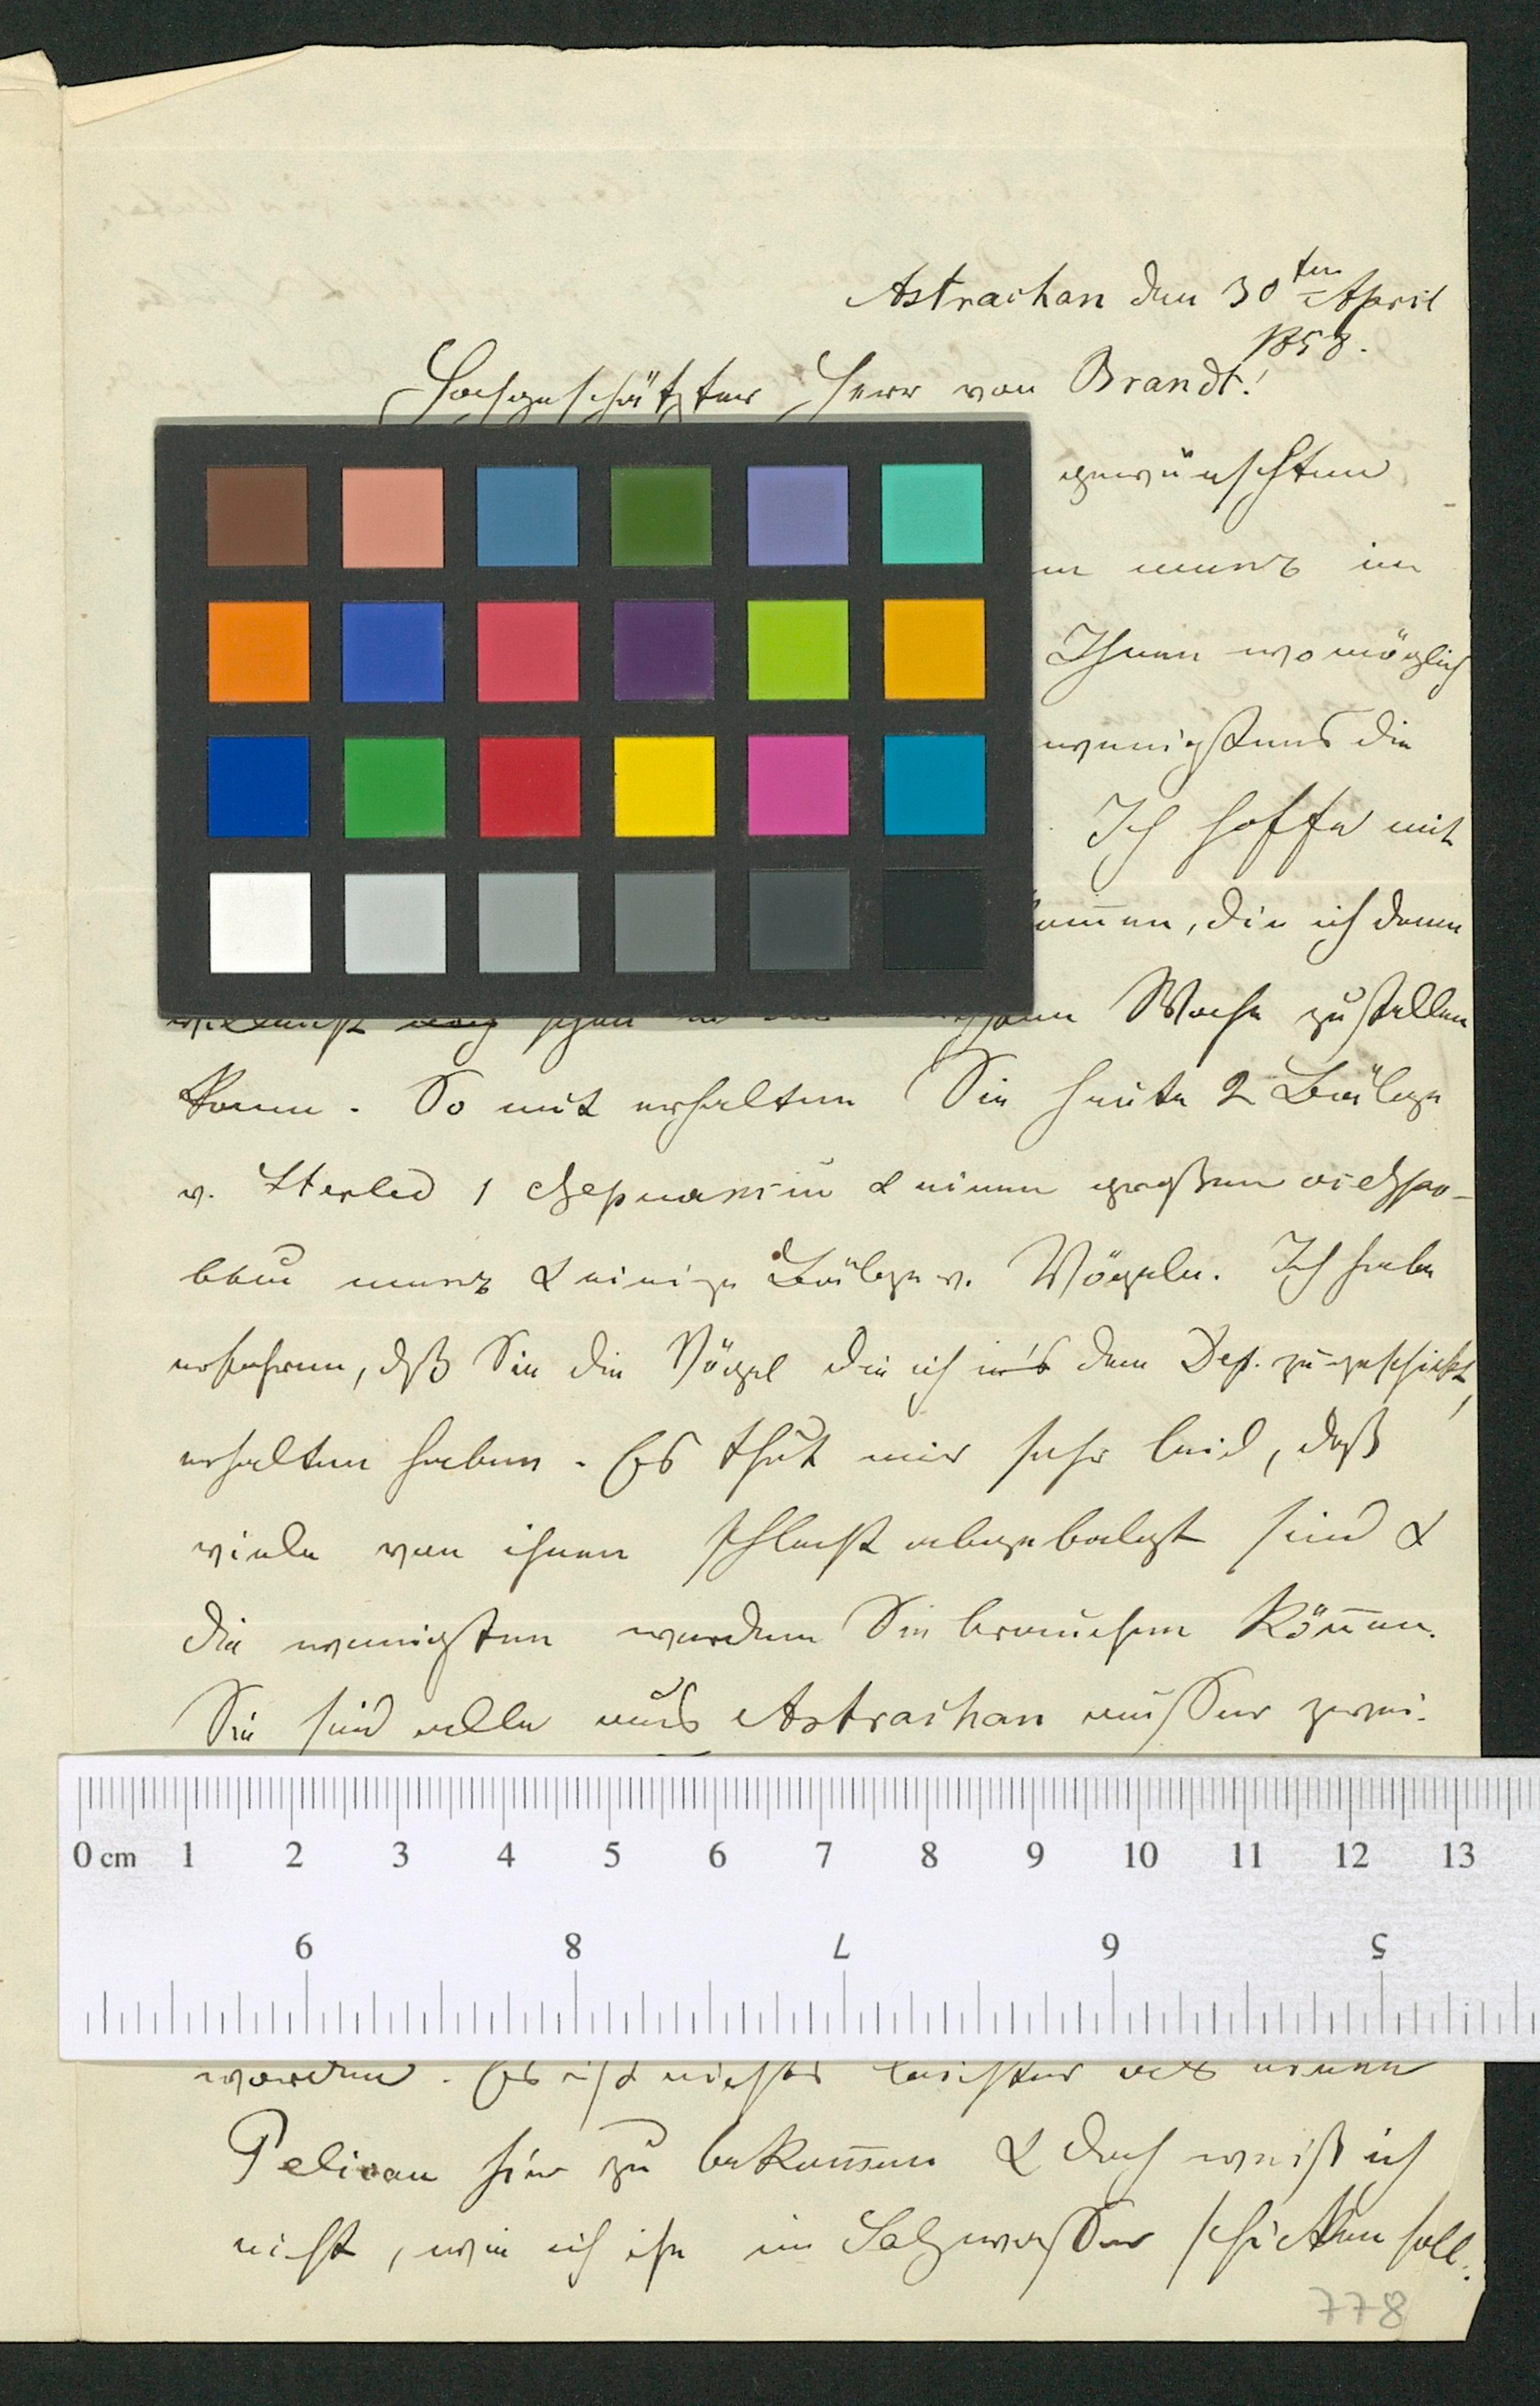 Astrachan den 30ten April
1858.
Hochgeschätzter Herr von Brandt!
gewünschten
im
Ihnen womöglich
wenigstens die
Ich hoffe mit
die ich denn
schon Woche zustellen
kann. So mit erhalten Sie heute 2 Bälge
v. Sterled 1 & einen großen
& einige Bälge v. Vögeln. Ich habe
erfahren, dß Sie die Vögel die ich dem Dep. zugeschickt,
erhalten haben. Es thut mir sehr leid, daß
viele von ihnen schlecht abgebalgt sind &
die wenigsten werden Sie brauchen können.
Sie sind alle aus Astrachan ausser zwei.
0 cm 1 2 3 4 5 6 7 8 9 10 11 12 13
9 8 7 6 5
werden. Es ist nichts leichter als einen
Pelican hier zu bekom̅en & doch weiß ich
nicht, wie ich ihn im Salzwasser schicken soll.
778